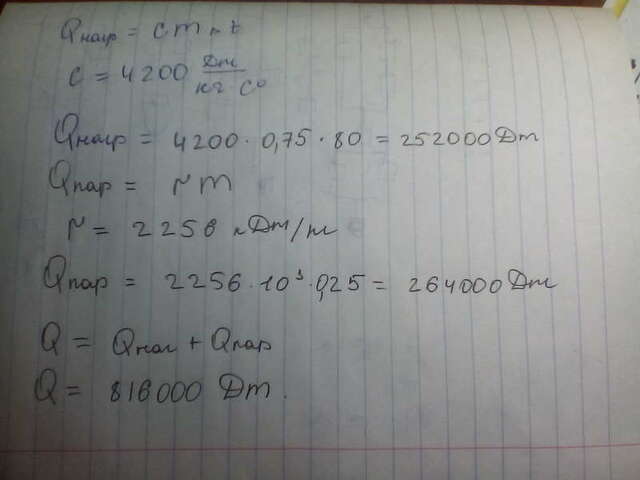 Qнагр = cm᎐t
c = 4200 Дж/кг·C⁰
Qнагр = 4200 · 0,75 · 80 = 252000 Дж
Qпар = rm
r = 2256 кДж/кг
Qпар = 2256 · 10³ · 0,25 = 264000 Дж
Q = Qнаг + Qпар
Q = 816000 Дж.